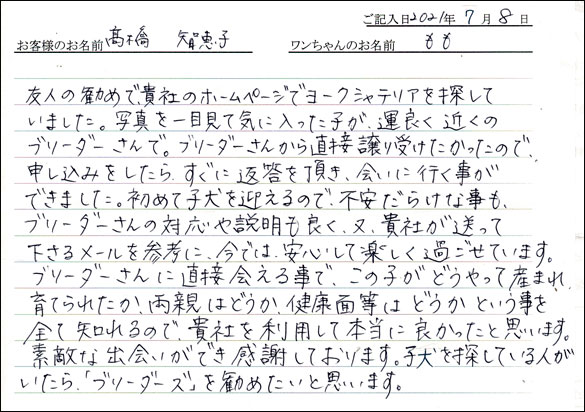 ご記入日2021年 7月 8日
お客様のお名前 髙橋 智恵子 ワンちゃんのお名前 もも
友人の勧めで、貴社のホームページでヨークシャテリアを探して
いました。写真を一目見て気に入った子が、運良く近くの
ブリーダーさんで。ブリーダーさんから直接譲り受けたかったので、
申し込みをしたら、すぐに返答を頂き、会いに行く事が
できました。初めて子犬を迎えるので、不安だらけな事も、
ブリーダーさんの対応や説明も良く、又、貴社が送って
下さるメールを参考に、今では、安心して楽しく過ごせています。
ブリーダーさんに直接会える事で、この子がどうやって産まれ、
育てられたか、両親はどうか、健康面等はどうかという事を
全て知れるので、貴社を利用して本当に良かったと思います。
素敵な出会いができ感謝しております。子犬を探している人が
いたら、「ブリーダーズ」を勧めたいと思います。